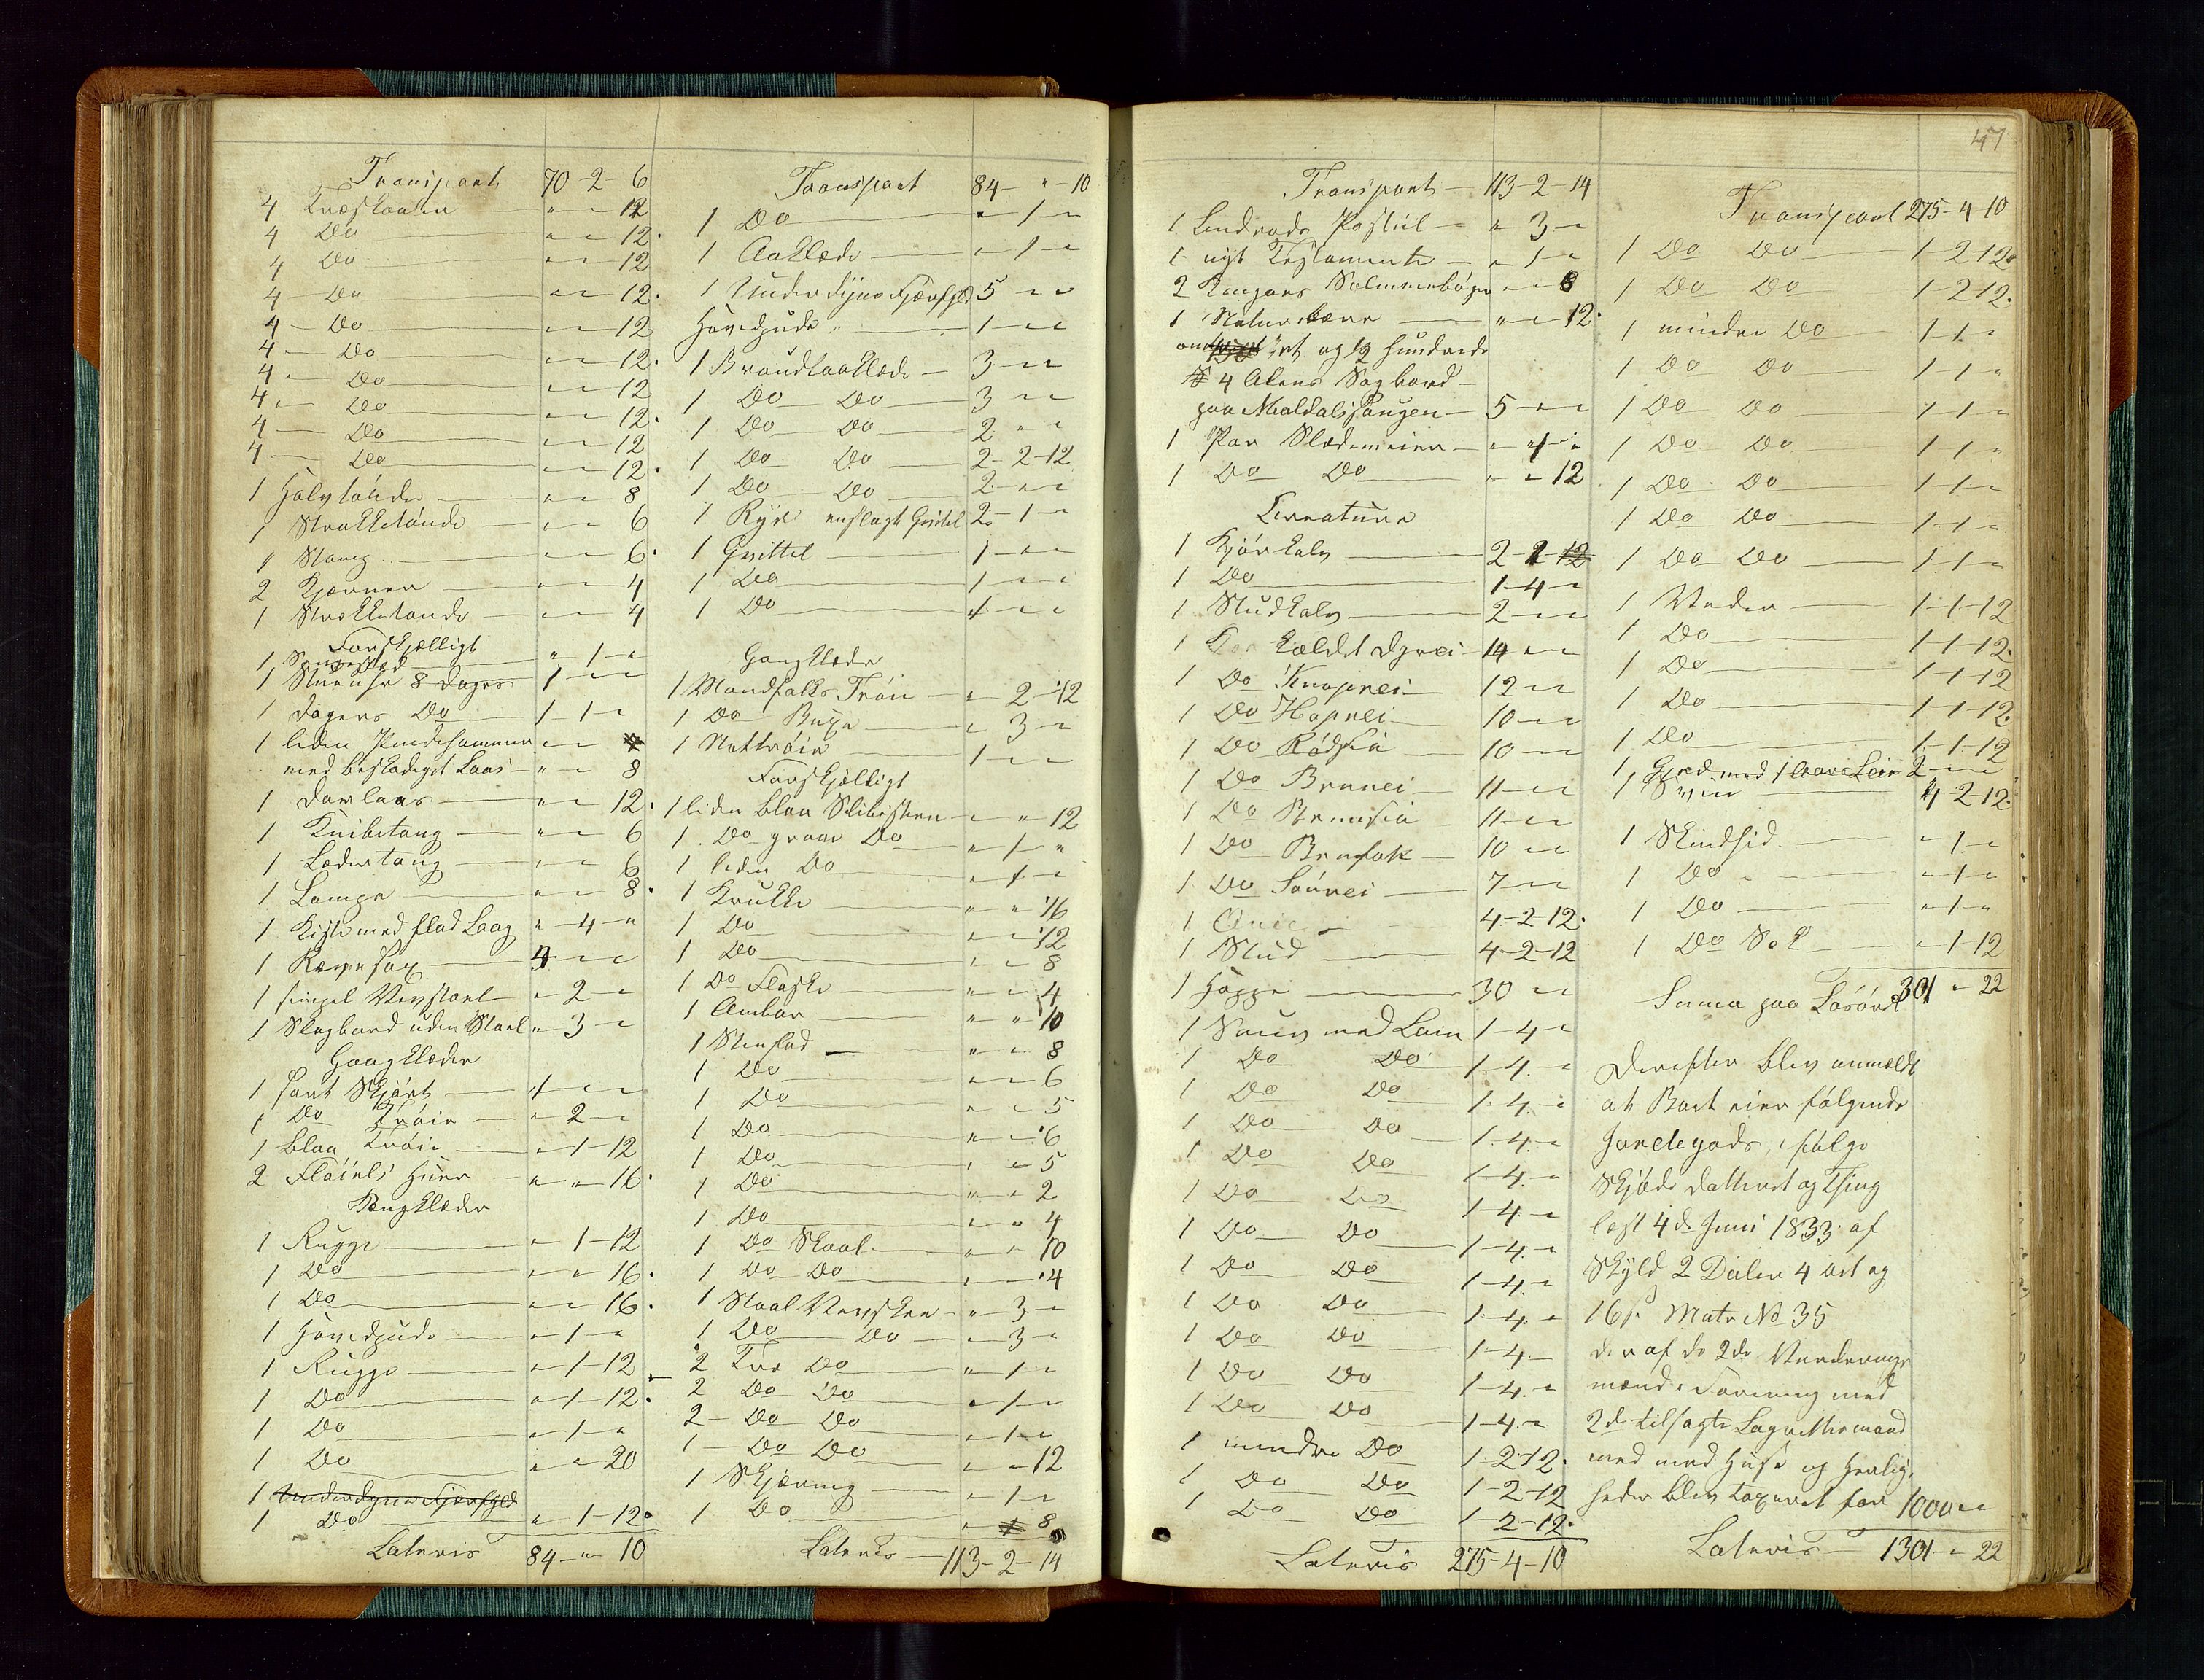 Transport 70-2-6
4 Træskaaler " - 12
4 Do " - 12.
4 Do " - 12
4 - Do " - 12.
4 - Do " - 12
4 - Do " - 12.
4 - Do " - 12
4 - Do " - 12.
4 - Do " - 12
4 - Do " - 12.
1 Halvtønde " - 8
1 Strokketønde " - 6
1 Stamp " - 6.
2 Kjærner " - 4
1 Strokketønde " - 4
Forskjælligt
1 Sengested " - 1 - "
1 Stueuhr 8 Dages 1 - "
1 Dagers Do 1 - 1 - "
1 liden
med beskadiget Laas " - 8
1 Dørlaas " - 12.
1 Knibetang " - 6
1 Lædertang " - 6
1 Lampe " - 8.
1 Kiste med flad Laag " - 4 - "
1 Rævesax
1 simpel Vævstoel " - 2 - "
1 Slagbord uden Stoel " - 3 - "
Gangklæder
1 sort Skjørt 1 - "
1 Do Trøie " - 2 - "
1 blaa Trøie " - 1-12
2 Fløiels Huer " - " - 16.
Sengklæder
1 Rugge " - 1-12
1 Do " - 16.
1 Do " - 16.
1 Hovedpude " - 1 - "
1 Rugge " - 1-12
1 Do " - 1-12.
1 Do " - 1 - "
1 Do " - 20
1 Underdyne Fjærfyld
1 Do " - 1-12.
Lateris 84 - " - 10
Transport 84 - " - 10
1 Do " - 1 - "
1 Aaklæde " - 1 - "
1 Underdyne Fjærfyld 5 - "
Hovedpude 1 - "
1 Brandtaaklæde 3 - "
1 Do Do 3 - "
1 Do Do 2 " "
1 Do Do 2-2-12
1 Do Do 2 - "
1 Rye Qvitel 2 - 1 - "
1 Qvittel 1 - "
1 Do 1 - "
1 Do 1 - "
Gangklæder
1 Mandfolks Trøie " - 2-12
1 Do Buxe " - 3 - "
1 Nattrøie 1 - "
Forskjelligt
1 liden blaa Skibskiste " - 12
1 Do graae Do " - 1 - "
1 liden Do " - 1 - "
1 Krukke " " 16
1 Do " - 12
1 Do " - 8
1 Do Flaske " - 4
1 Ambar " " 10
1 Steenfad " - 8
1 Do " - 6
1 Do " - 5
1 Do " - 6
1 Do " - 5
1 Do " - 2
1 Do " - 4
1 Do Skaal " " 10
1 Do Do - 4
1 Staal " - 3 - "
1 Do Do " - 3 - "
2 Træ Do " - 1 - "
2 Do Do " - 1 - "
2 - Do Do " - 1 - "
1 - Do Do " - 12
1 Skjæring " - 1 - "
1 Do " 8
Lateris 113-2-14
47
Transport 113-2-14
1 Lindrods Postil " 3 - "
1 nyt Testamente " 1 - "
2 Kingos Salmebøger " - 8
1 " - 12.
et og ½ hundrede
4 Alens Sagbord
paa 5 - "
1 Par Slædemeier " - 1 - "
1 Do Do " - 12
Creature
1 Kjørkalv
1 Do 1-4-"
1 Studkalv 2 - "
1 Koe kaldet Dyrei 14 - "
1 Do Knuprei 12 - "
1 Do Hoprei 10 - "
1 Do Rødsiå 10 - "
1 Do Brunei 11 - "
1 Do 11 - "
1 Do 10 - "
1 Do 7 - "
1 Qvie 4-2-12.
1 Stud 4-2-12
1 Hoppe 30 - "
1 Souv med Lam 1-4-"
1 Do Do 1-4-"
1 Do Do 1-4-"
1 Do Do 1-4-"
1 Do Do 1-4-"
1 Do Do 1-4-"
1 Do Do 1-4-"
1 Do Do 1-4-"
1 Do Do 1-4-"
1 Do Do 1-4-
1 Do Do 1-4-"
1 Do Do 1-4-"
1 mindre Do 1-2-12.
1 Do Do 1-2-12
1 Do Do 1-2-12.
Lateris 275-4-10
Transport 275-4-10
1 Do Do 1-2-12.
1 Do Do 1-2-12.
1 mindre Do 1-1-"
1 Do Do 1-1-"
1 Do Do 1-1-"
1 Do Do 1-1-"
1 Do Do 1-1-"
1 Do Do 1-1-"
1 Do Do 1-1-"
1 Veder 1-1-12
1 Do 1-1-12.
1 Do 1-1-12
1 Do 1-1-12.
1 Do 1-1-12
1 Gjed med 2 - "
1 Sviin 4-2-12.
1 Skindfid " - 1 - "
1 Do " - 1 - "
1 Do " - 1 - "
1 Do " - 1-12
Suma paa Løsøret 301 " 22
Derefter blev anmeldt
at Boet eier følgende
Jordegods, ifølge
Skjøde datteret og Thing
læst 4de Juni 1833 af
Skyld 2 Daler 4 ort og
16 s. Matr No 35
der af de 2de Vurderings
mænd i Forening med
2de tilsagte Lagrettesmænd
med Huse og Herlig-
heder blev taxeret for 1000 - "
Lateris 1301 - " 22